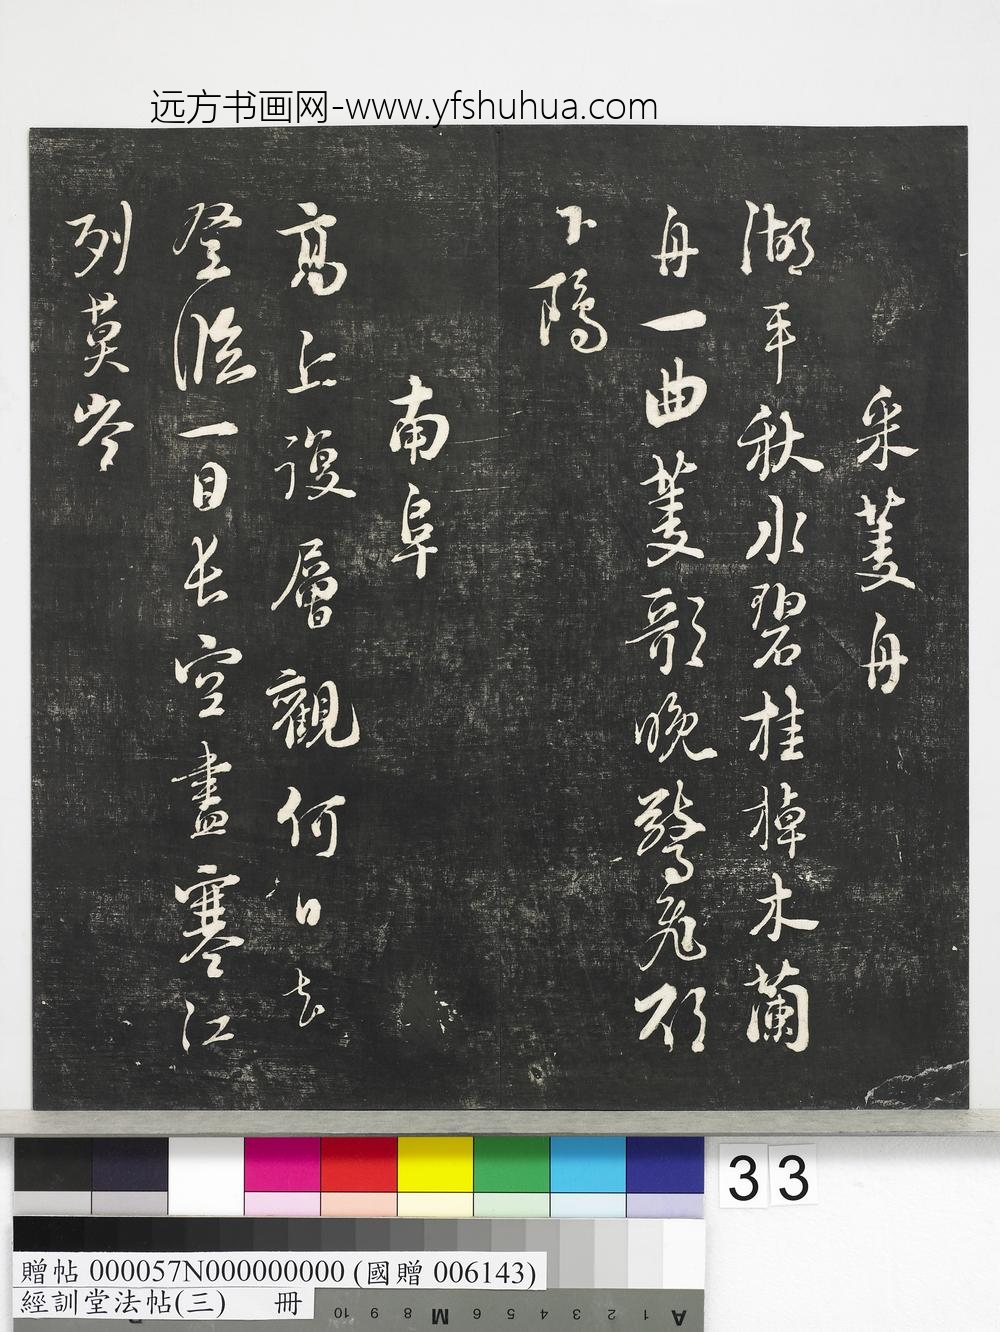 远方书画网-www.yfshuhua.com
采菱舟
湖平秋水碧桂棹木蘭
舟一曲菱歌晚驚飛欲
下鷗
南阜
高上復層觀何日去
登臨一目長空盡寒江
列莫岑
33
贈帖 000057N000000000 (國贈 006143)
經訓堂法帖(三) 冊
A 1 2 3 4 5 6 M 8 9 10